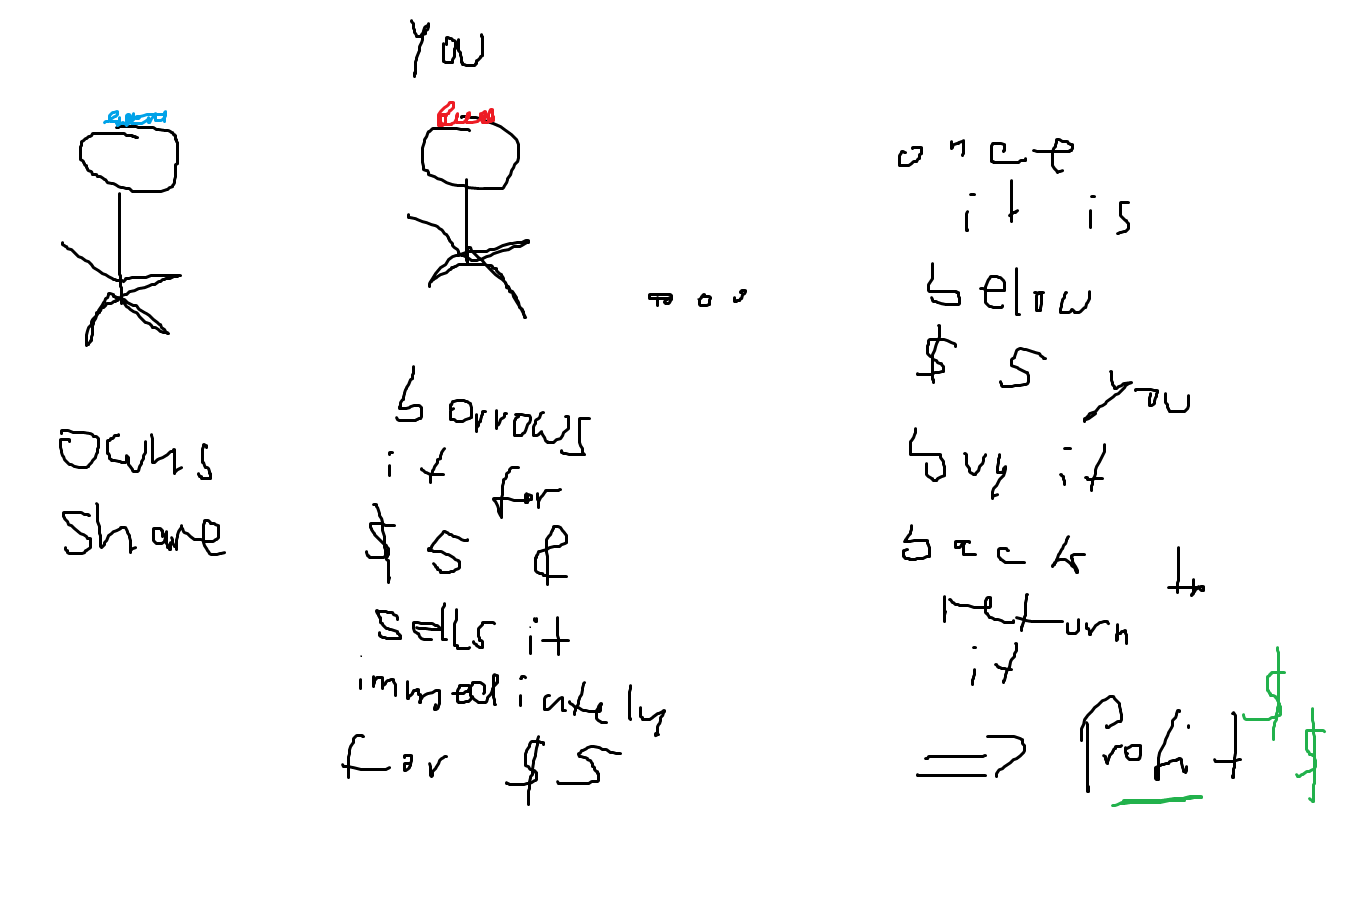 You
owns
share
borrows
it for
$5 &
sells it
immediately
for $5
...
once
it is
below
$5 you
buy it
back to
return
it
=> Profit $$